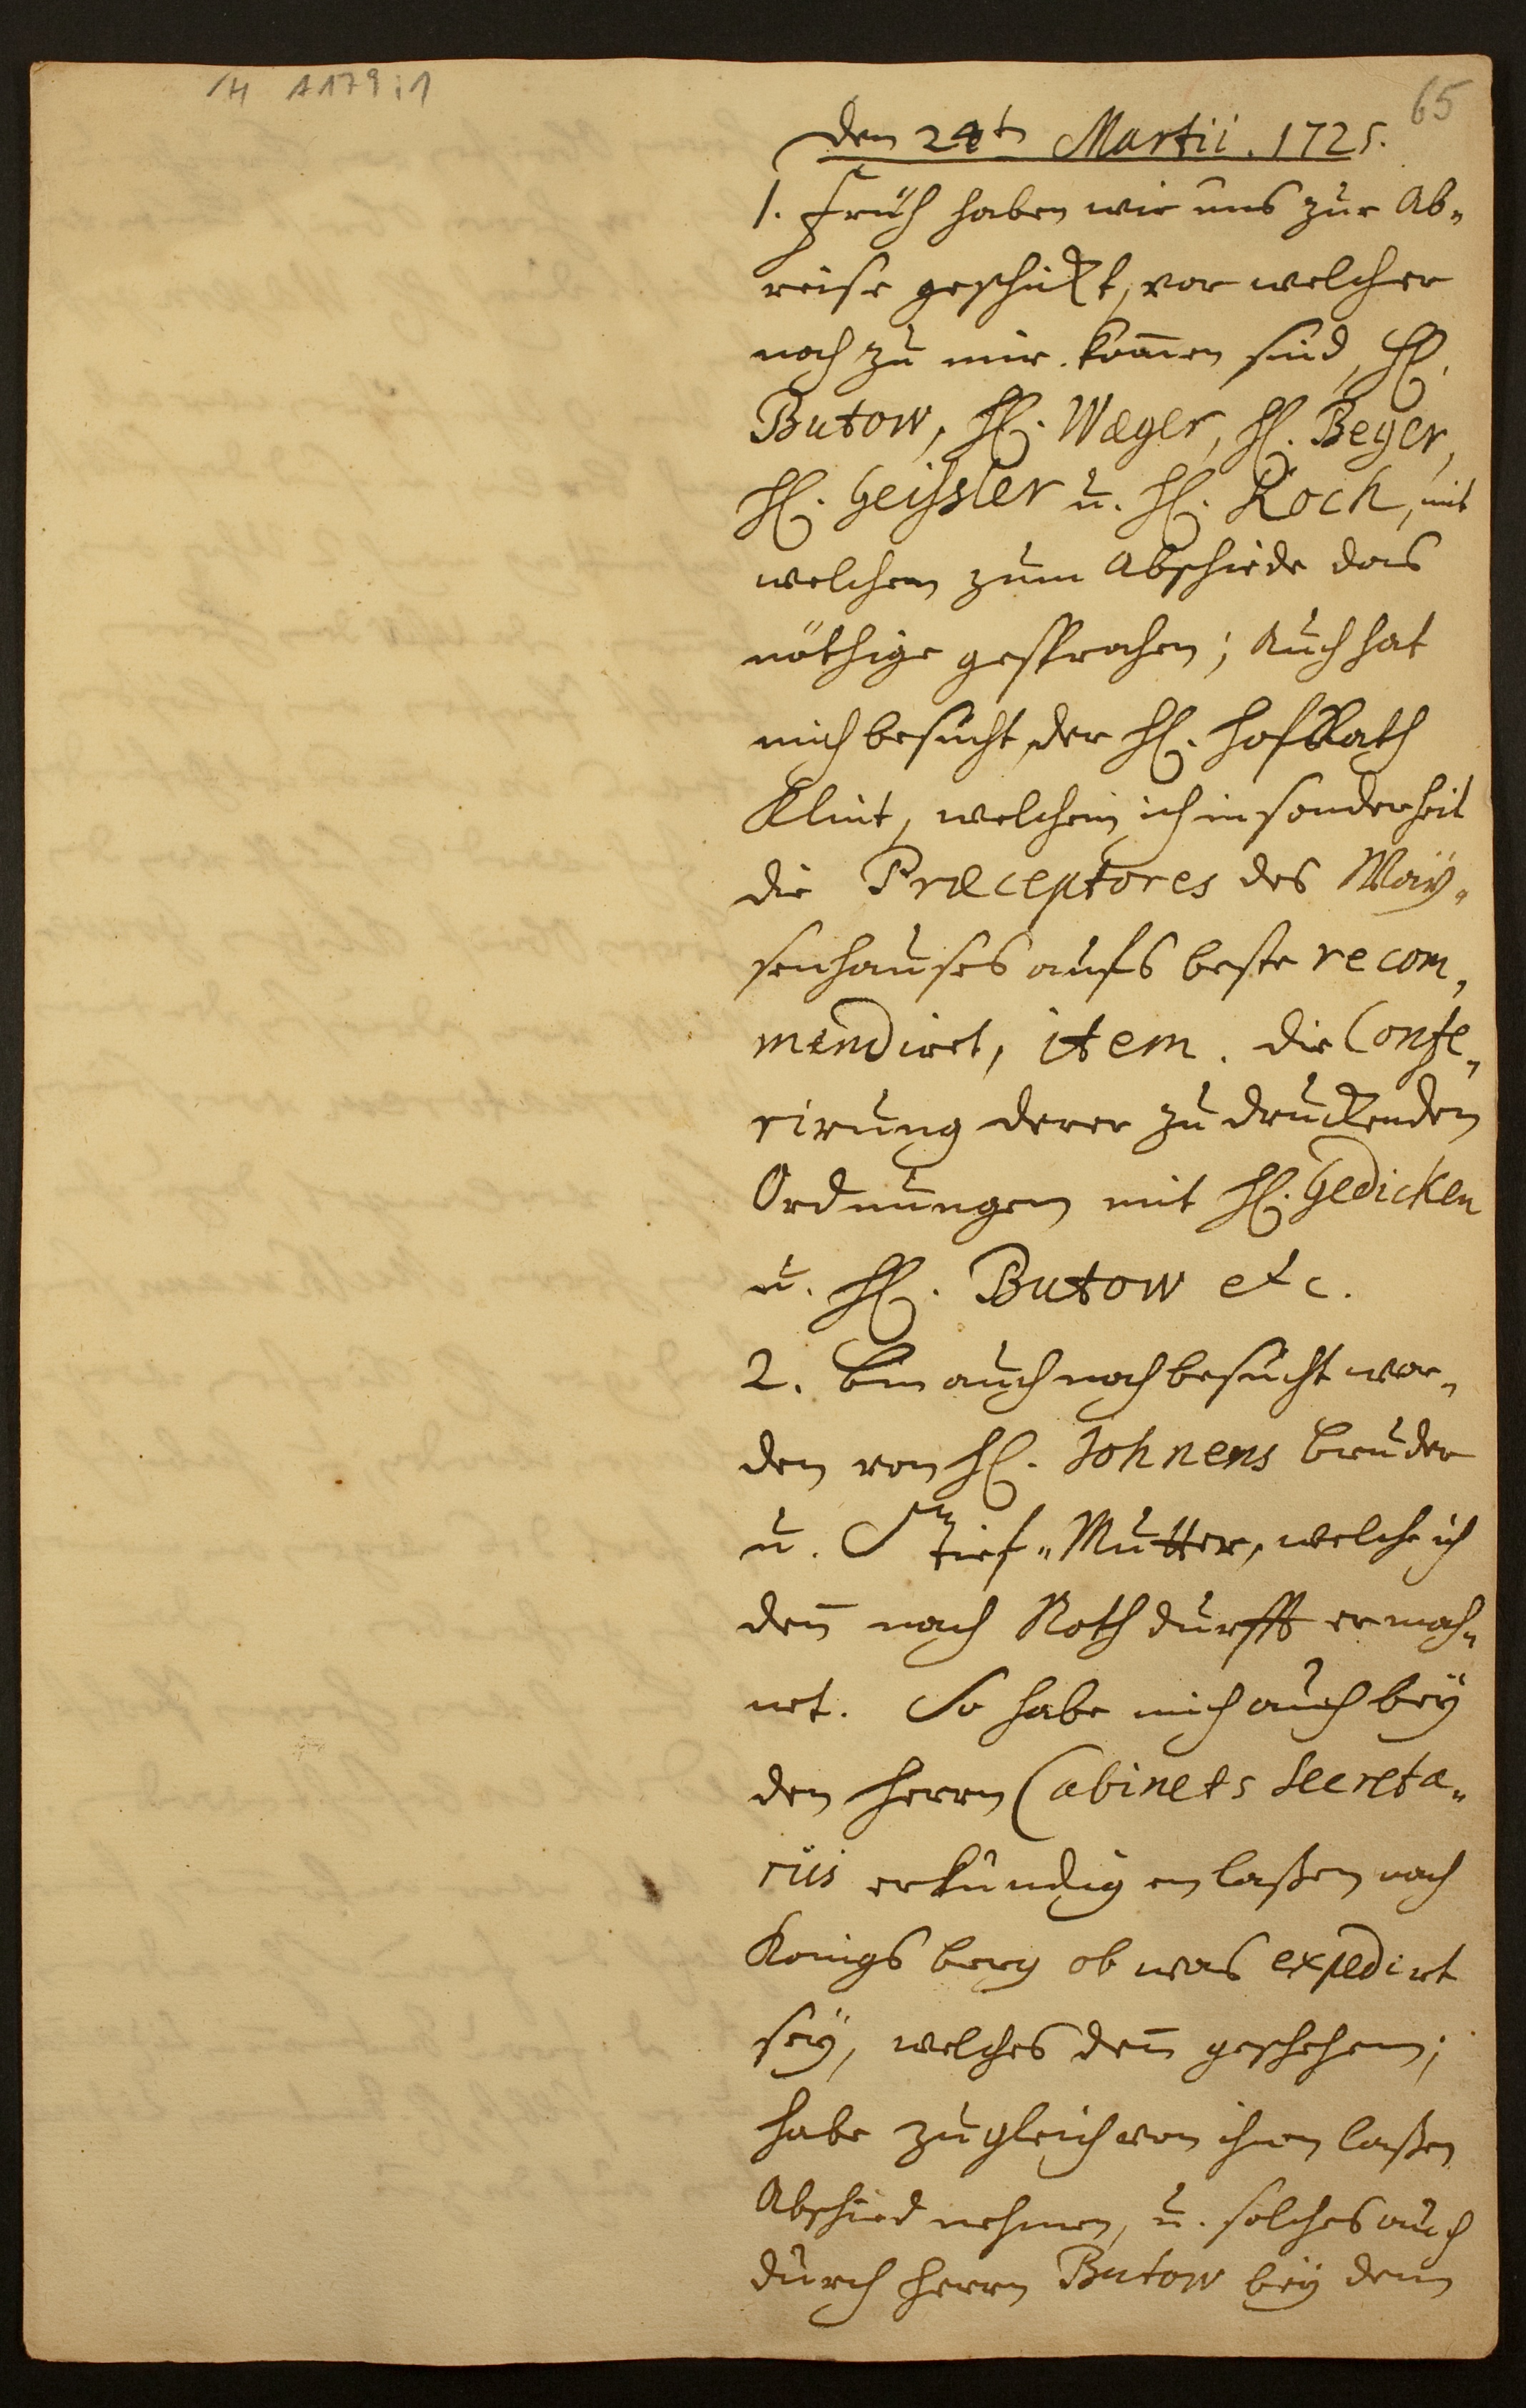 /H A179:1
65
den 24t Martii. 1725.
1. Früh haben wir uns zur Ab-
reise geschickt, vor welcher
noch zu mir kom̄en sind, H.
Butow, H. Wæger, H. Beyer,
H. Geissler u. H. Koch, mit
welchem zum Abschiede das
nöthige gesprochen; Auch hat
mich besucht der H. HofRath
Klint, welchem ich insonderheit
die Præceptores des Wäy-
senhauses aufs beste recom-
mendiret, item. die Confe-
rirung derer zu druckenden
Ordnungen mit H. Gedicken
u. H. Butow etc.
2. Bin auch noch besucht wor-
den von H. Johnens Bruder
u. Stief-Mutter, welche ich
den̄ nach Nothdurfft ermah-
net. So habe mich auch bey
den Herrn Cabinets Secreta-
riis erkundigen laßen nach
Konigsberg ob was expedirt
sey, welches den̄ geschehen;
habe zugleich von ihnen laßen
Abschied nehmen, u. solches auch
durch Herrn Butow bey dem